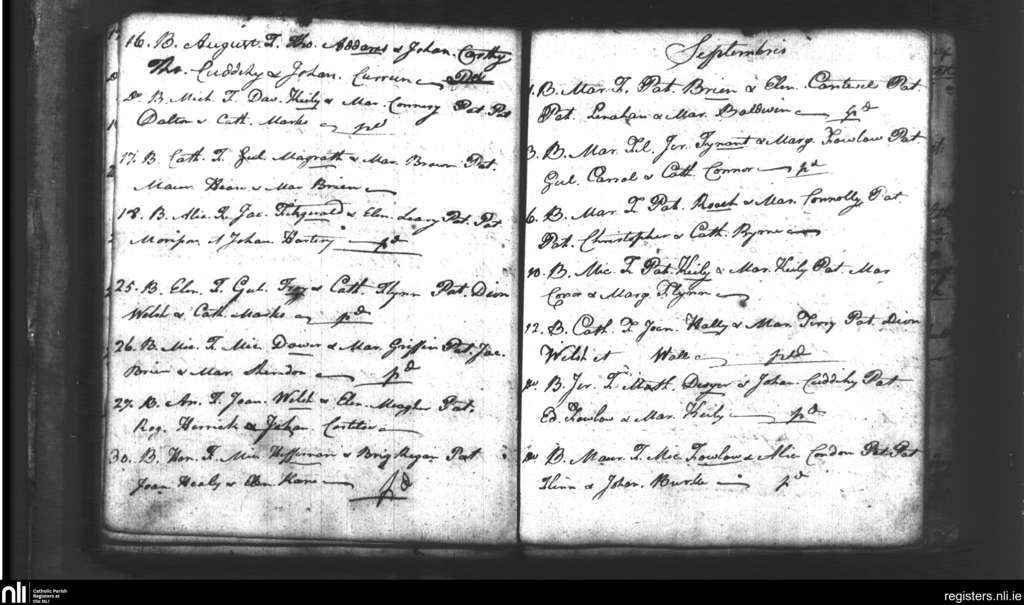 16. B. August. F. Tho. Addams & Johan. Carthy
Tho. Cuddihy & Johan. Curreen
do. B. Mich. F. Dav. Keily & Mar. Connery Pat. Pat
Dalton & Cath. Marks pd
17. B. Cath. F. Gul. Magrath & Mar. Brown Pat.
Maur. Hoan & Mar Brien
18. B. Alic. F. Jac. Fitzgerald & Elen. Leary Pat. Pat
Morison et Johan Hartery pd
25. B. Elen. F. Gul. & Cath. Flynn Pat. Dion
Welsh & Cath. Marks pd
26. B. Mic. F. Mic. Dower & Mar. Griffin Pat. Jac.
Brien & Mar. pd
27. B. An. F. Joan. Welsh & Elen. Meagher Pat.
Rog. Herrick & Johan Costelo
30. B. Hon. F. Mic. Heffernan & Brig. Regan Pat
Joan Healy & Elen Kane pd
Septembris
1. B. Mar. F. Pat. Brien & Elen. Pat.
Pat. Lenahan & Mar. Baldwin pd
3. B. Mar. Fil. Jer. Tynant & Marg. Fowlow Pat
Gul. Carrol & Cath Connor pd
6. B. Mar. F. Pat. Roach & Mar. Connolly Pat
Pat. Christopher & Cath. Byrne
10. B. Mic. F. Pat. Keily & Mar. Keily Pat. Mar
Conor & Marg. Flynn
12. B. Cath. F. Joan. Hally & Mar. Terry Pat. Dion
Welsh et Wall pd
do. B. Jer. F. Math. Dwyer & Johan. Cuddihy Pat
Ed. Fowlow & Mar. Keily pd
do. B. Maur. F. Mic. Fowlow & Alic Condon Pat. Pat
Flinn & Johan. Burke pd
nli
Catholic Parish
Registers at
the NLI
registers.nli.ie